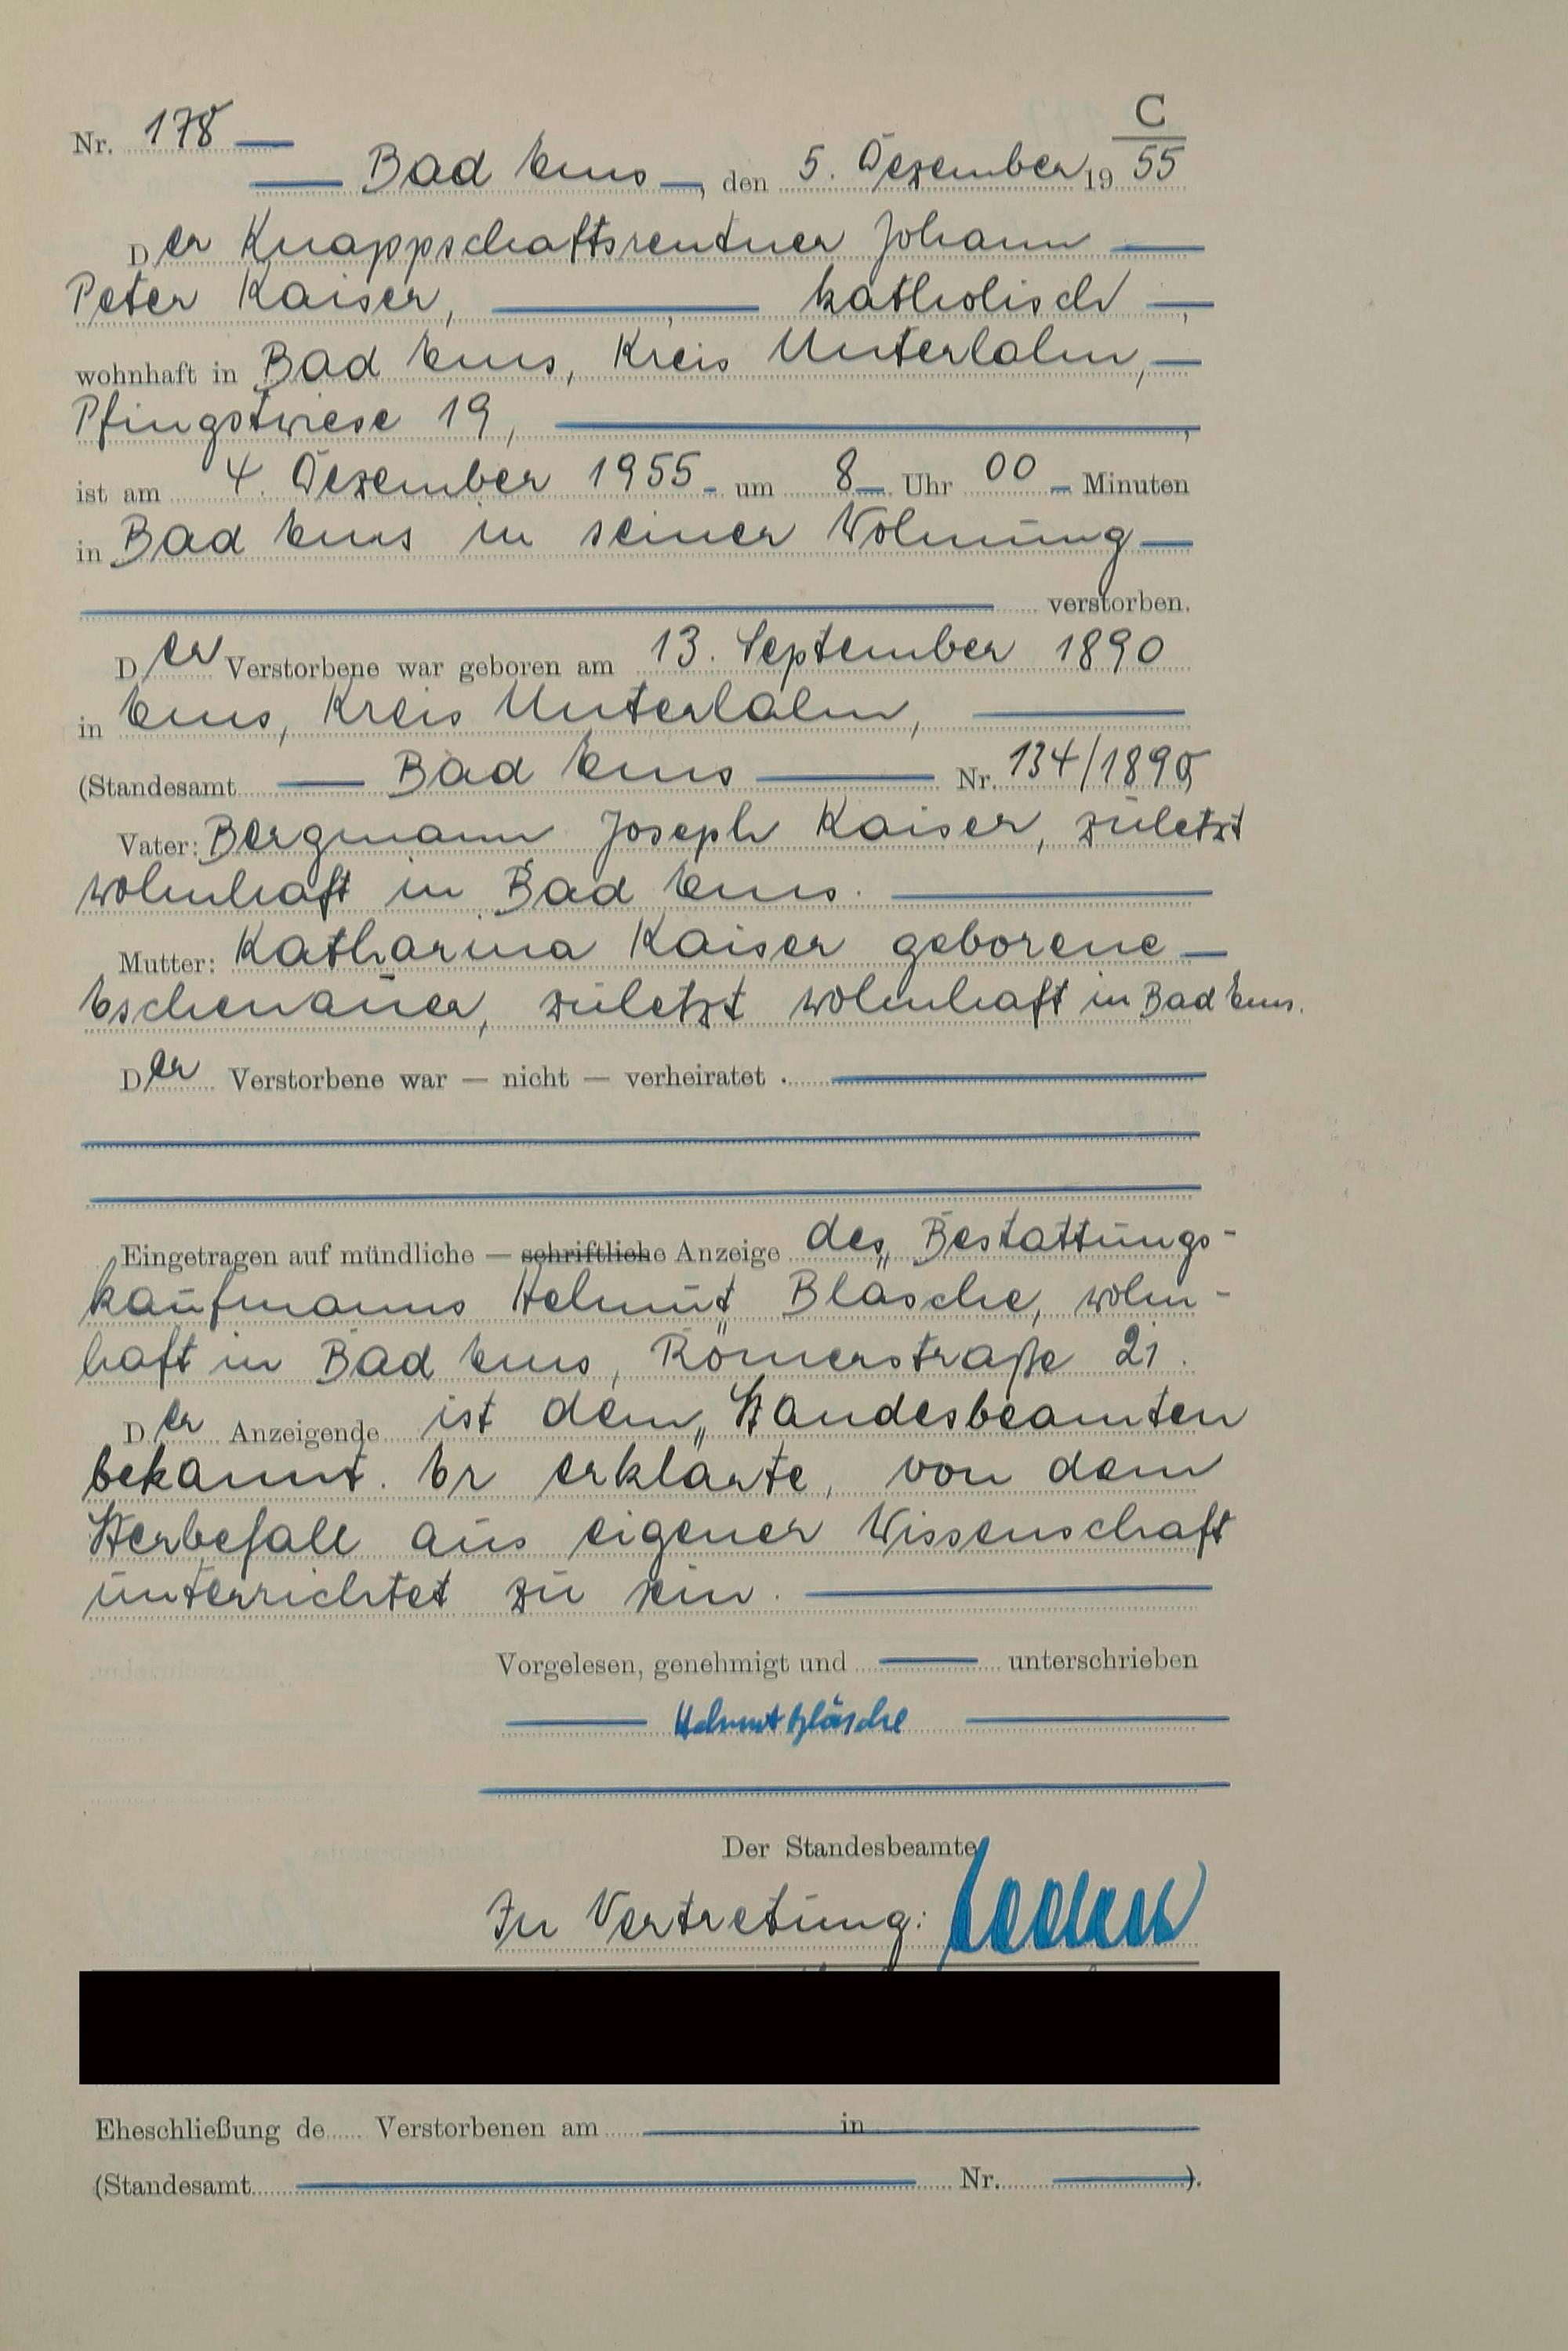 C
Nr. 178
Bad Ems, den 5. Dezember 19 55
Der Knappschaftsrentner Johann
Peter Kaiser, , katholisch ,
wohnhaft in Bad Ems, Kreis Unterlahn,
Pfingstwiese 19, ,
ist am 4. Dezember 1955 um 8 Uhr 00 Minuten
in Bad Ems in seiner Wohnung
verstorben.
Der Verstorbene war geboren am 13. September 1890
in Ems, Kreis Unterlahn,
(Standesamt Bad Ems Nr. 134/1890)
Vater: Bergmann Joseph Kaiser, zuletzt
wohnhaft in Bad Ems.
Mutter: Katharina Kaiser geborene
Eschenauer, zuletzt wohnhaft in Bad Ems.
Der Verstorbene war — nicht — verheiratet .
Eingetragen auf mündliche — schriftliche Anzeige des Bestattungs-
kaufmanns Helmut Bläsche, wohn-
haft in Bad Ems, Römerstraße 21.
Der Anzeigende ist dem Standesbeamten
bekannt. Er erklärte, von dem
Sterbefall aus eigener Wissenschaft
unterrichtet zu sein.
Vorgelesen, genehmigt und unterschrieben
Helmut Bläsche
Der Standesbeamte
In Vertretung:
Eheschließung de Verstorbenen am in
(Standesamt Nr. ).